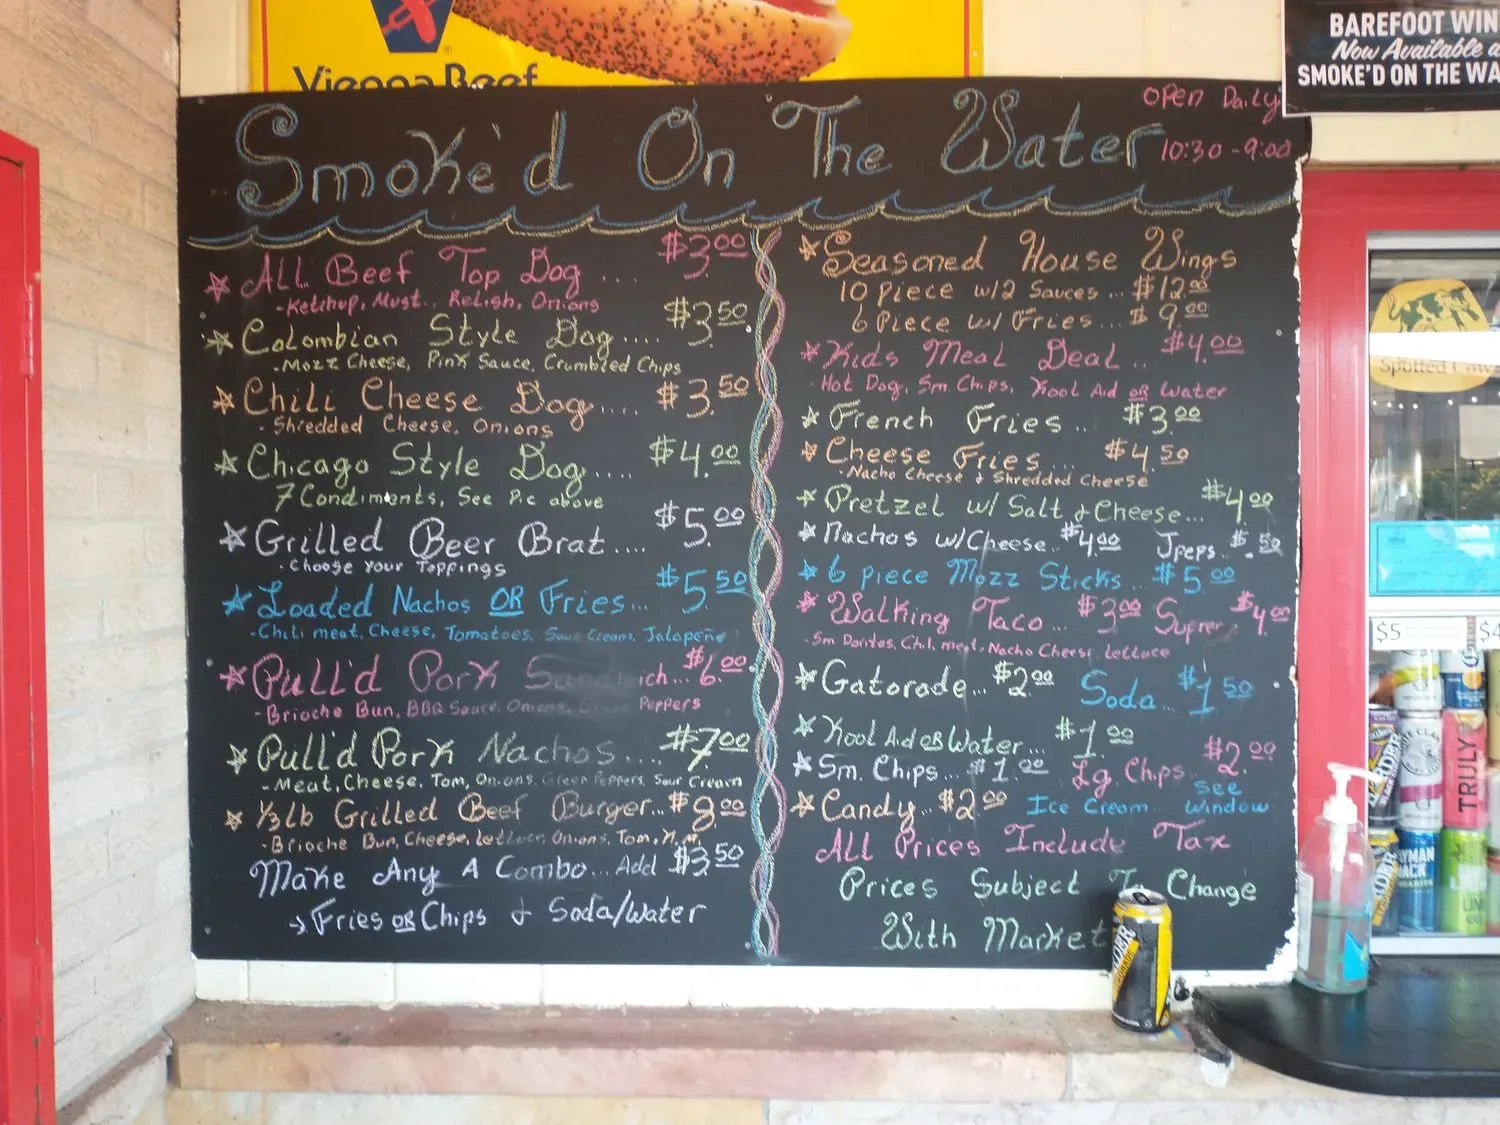 Vienna Beef
BAREFOOT WIN
Now Available a
SMOKE'D ON THE WA
OPEN Daily
10:30 - 9:00
Smoke'd On The Water
All Beef Top Dog .... $3.00
- Ketchup, Must., Relish, Onions
Colombian Style Dog .... $3.50
- Mozz Cheese, Pink Sauce, Crumbled Chips
Chili Cheese Dog .... $3.50
- Shredded Cheese, Onions
Chicago Style Dog .... $4.00
7 Condiments, See Pic above
Grilled Beer Brat .... $5.00
- Choose your Toppings
Loaded Nachos OR Fries... $5.50
- Chili meat, Cheese, Tomatoes, Sour Cream, Jalapeño
Pull'd Pork Sandwich... $6.00
- Brioche Bun, BBQ Sauce, Onions, Green Peppers
Pull'd Pork Nachos.... $7.00
- Meat, Cheese, Tom, Onions, Green Peppers, Sour Cream
1/3 lb Grilled Beef Burger... $8.00
- Brioche Bun, Cheese, Lettuce, Onions, Tom,
Make Any A Combo... Add $3.50
→ Fries OR Chips & Soda/Water
Seasoned House Wings
10 piece w/2 Sauces ... $12.00
6 Piece w/ Fries ... $9.00
Kids Meal Deal ... $4.00
- Hot Dog, Sm Chips, Kool Aid or Water
French Fries ... $3.00
Cheese Fries ... $4.50
- Nacho Cheese & Shredded Cheese
Pretzel w/ Salt & Cheese... $4.00
Nachos w/Cheese.. $4.00 Jpeps.. $.50
6 piece Mozz Sticks... $5.00
Walking Taco ... $3.00 Suprer $4.00
- Sm Doritos, Chili meat, Nacho Cheese, lettuce
Gatorade... $2.00 Soda... $1.50
Kool Aid OR Water... $1.00
Sm. Chips... $1.00 Lg. Chips.. $2.00
Candy... $2.00 Ice Cream.. See Window
All Prices Include Tax
Prices Subject To Change
With Market
Spotted Cow
$5
$4
TRULY